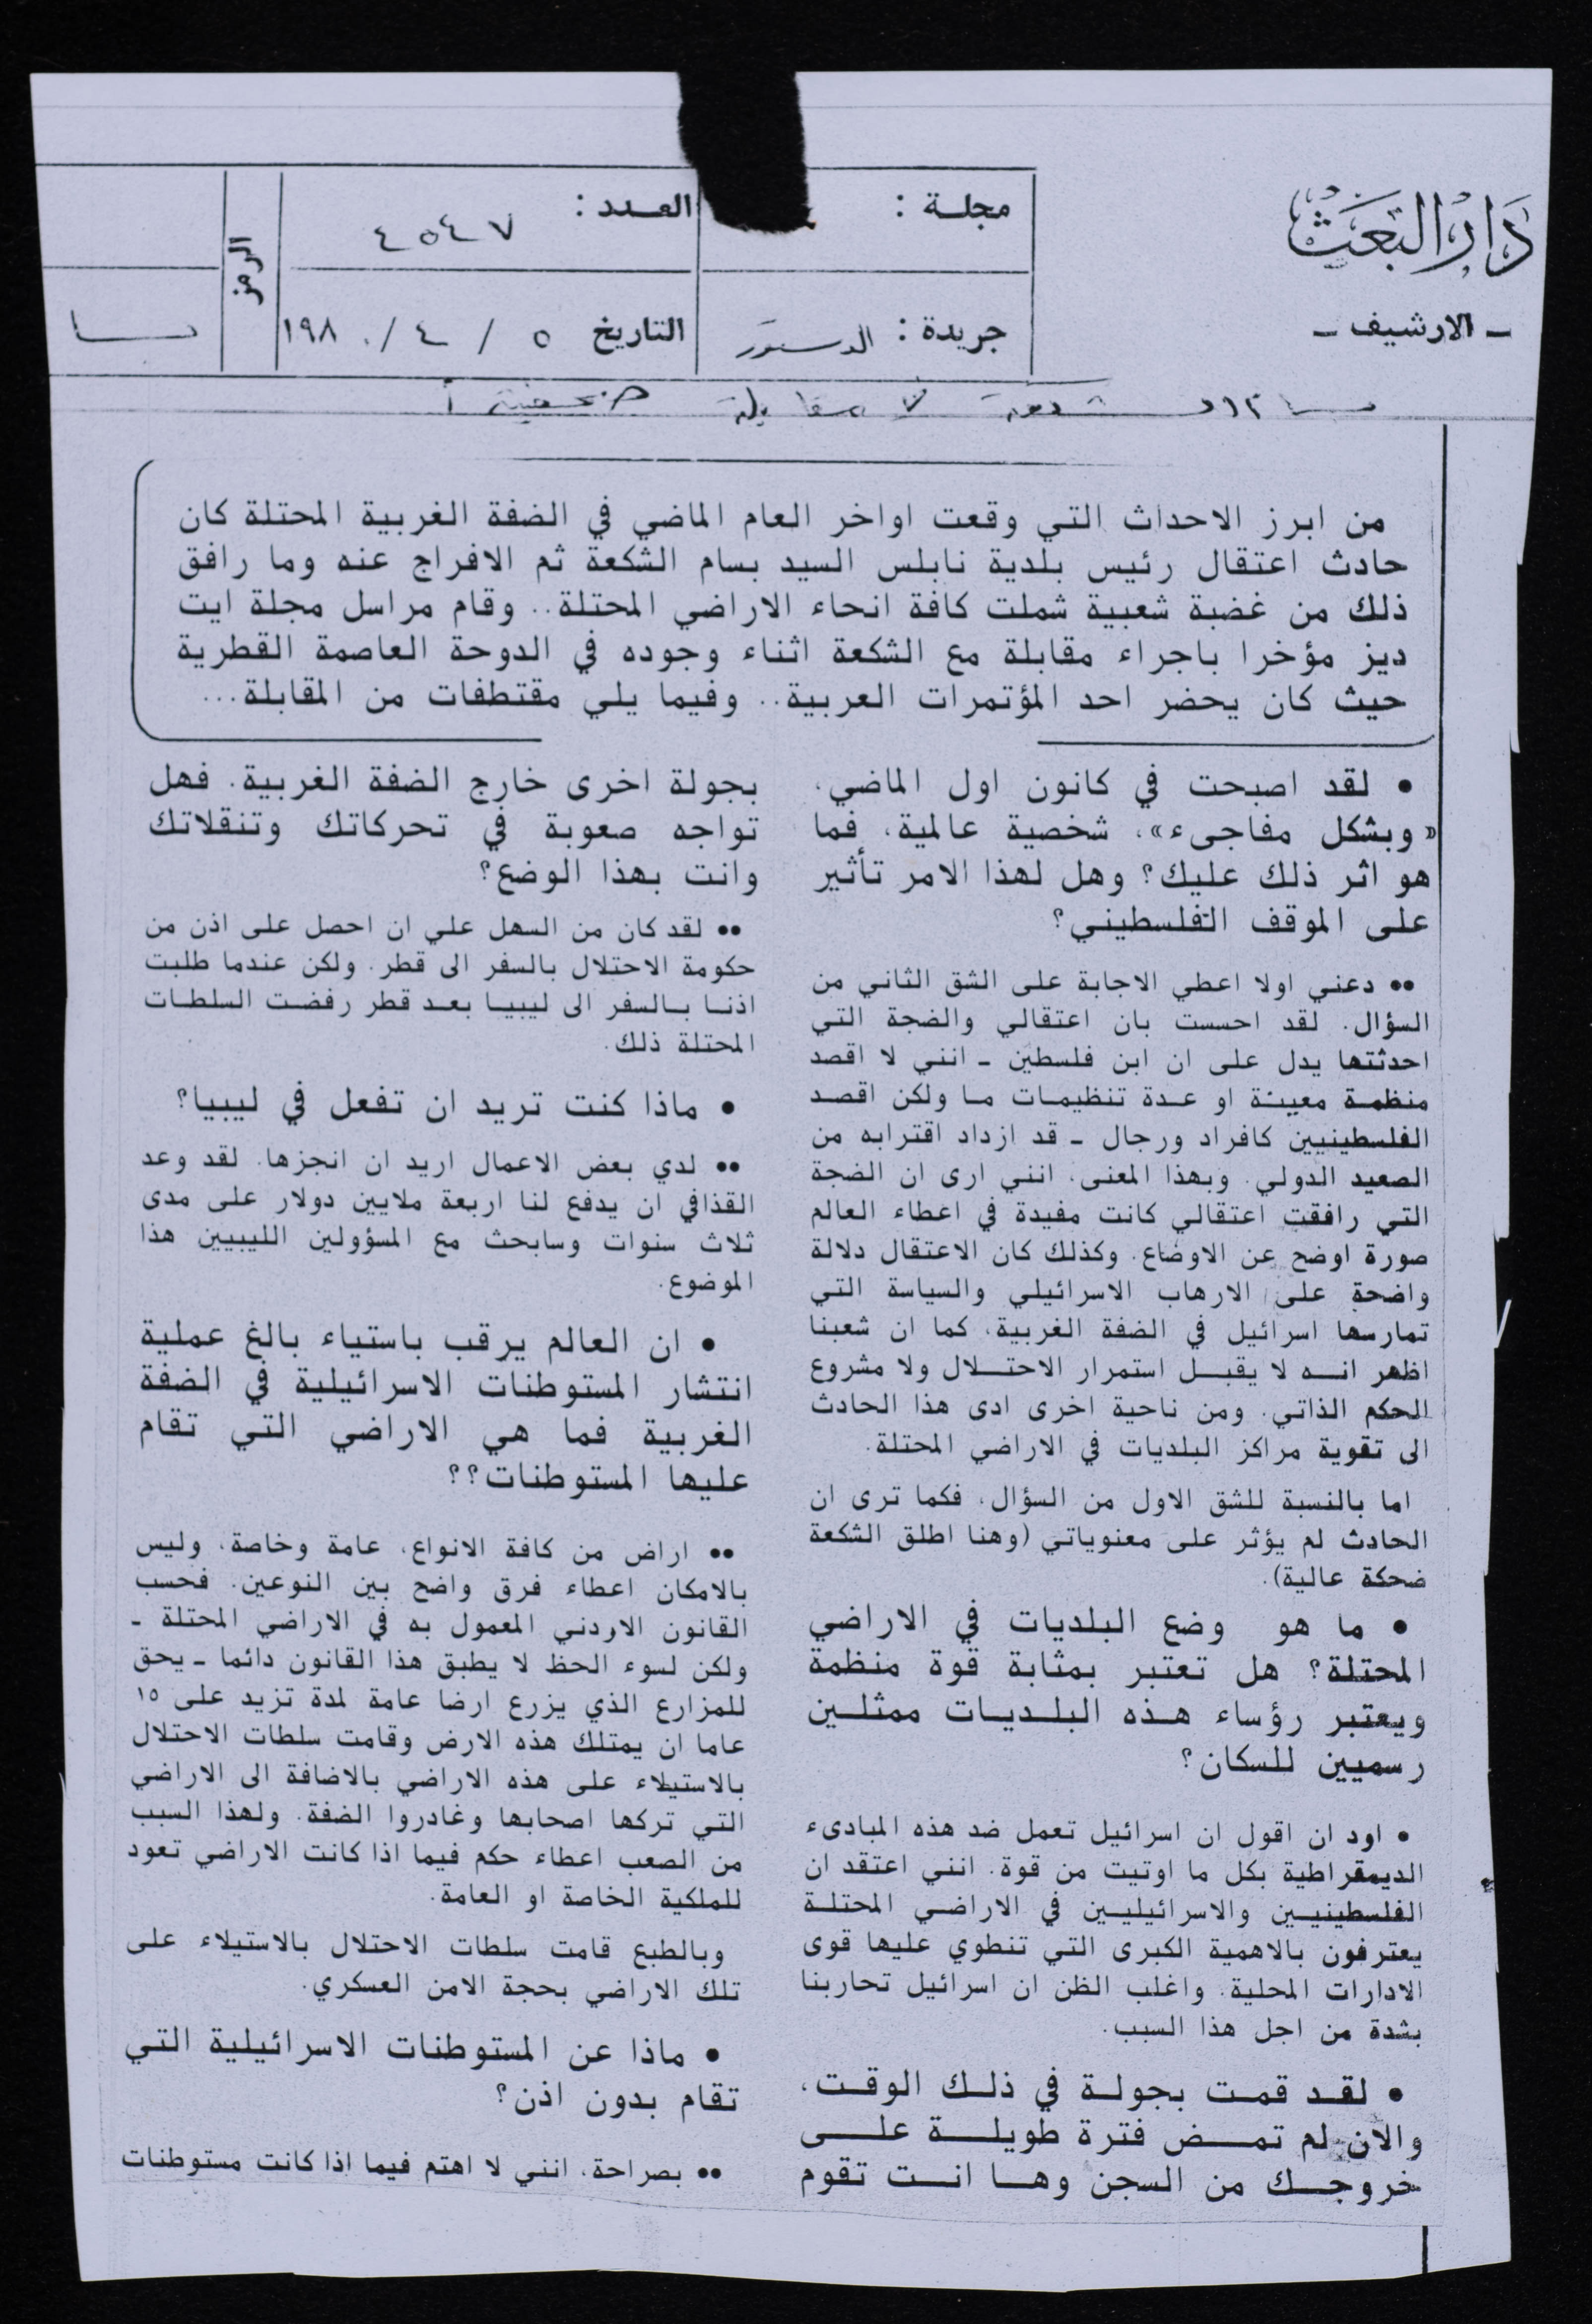 دار البعث
ـ الارشيف ـ
مجلة :
العدد : ٤٥٤٧
جريدة : الدستور
التاريخ ٥ / ٤ / ١٩٨٠
الرمز
من ابرز الاحداث التي وقعت اواخر العام الماضي في الضفة الغربية المحتلة كان
حادث اعتقال رئيس بلدية نابلس السيد بسام الشكعة ثم الافراج عنه وما رافق
ذلك من غضبة شعبية شملت كافة انحاء الاراضي المحتلة.. وقام مراسل مجلة ايت
ديز مؤخرا باجراء مقابلة مع الشكعة اثناء وجوده في الدوحة العاصمة القطرية
حيث كان يحضر احد المؤتمرات العربية.. وفيما يلي مقتطفات من المقابلة...
• لقد اصبحت في كانون اول الماضي،
«وبشكل مفاجىء»، شخصية عالمية، فما
هو اثر ذلك عليك؟ وهل لهذا الامر تأثير
على الموقف الفلسطيني؟
•• دعني اولا اعطي الاجابة على الشق الثاني من
السؤال. لقد احسست بان اعتقالي والضجة التي
احدثتها يدل على ان ابن فلسطين ـ انني لا اقصد
منظمة معينة او عدة تنظيمات ما ولكن اقصد
الفلسطينيين كافراد ورجال ـ قد ازداد اقترابه من
الصعيد الدولي. وبهذا المعنى، انني ارى ان الضجة
التي رافقت اعتقالي كانت مفيدة في اعطاء العالم
صورة اوضح عن الاوضاع. وكذلك كان الاعتقال دلالة
واضحة على الارهاب الاسرائيلي والسياسة التي
تمارسها اسرائيل في الضفة الغربية، كما ان شعبنا
اظهر انه لا يقبل استمرار الاحتلال ولا مشروع
الحكم الذاتي. ومن ناحية اخرى ادى هذا الحادث
الى تقوية مراكز البلديات في الاراضي المحتلة.
اما بالنسبة للشق الاول من السؤال، فكما ترى ان
الحادث لم يؤثر على معنوياتي (وهنا اطلق الشكعة
ضحكة عالية).
• ما هو وضع البلديات في الاراضي
المحتلة؟ هل تعتبر بمثابة قوة منظمة
ويعتبر رؤساء هذه البلديات ممثلين
رسميين للسكان؟
• اود ان اقول ان اسرائيل تعمل ضد هذه المبادىء
الديمقراطية بكل ما اوتيت من قوة. انني اعتقد ان
الفلسطينيين والاسرائيليين في الاراضي المحتلة
يعترفون بالاهمية الكبرى التي تنطوي عليها قوى
الادارات المحلية. واغلب الظن ان اسرائيل تحاربنا
بشدة من اجل هذا السبب.
• لقد قمت بجولة في ذلك الوقت،
والان لم تمض فترة طويلة على
خروجك من السجن وها انت تقوم
بجولة اخرى خارج الضفة الغربية. فهل
تواجه صعوبة في تحركاتك وتنقلاتك
وانت بهذا الوضع؟
•• لقد كان من السهل علي ان احصل على اذن من
حكومة الاحتلال بالسفر الى قطر. ولكن عندما طلبت
اذنا بالسفر الى ليبيا بعد قطر رفضت السلطات
المحتلة ذلك.
• ماذا كنت تريد ان تفعل في ليبيا؟
•• لدي بعض الاعمال اريد ان انجزها. لقد وعد
القذافي ان يدفع لنا اربعة ملايين دولار على مدى
ثلاث سنوات وسابحث مع المسؤولين الليبيين هذا
الموضوع.
• ان العالم يرقب باستياء بالغ عملية
انتشار المستوطنات الاسرائيلية في الضفة
الغربية فما هي الاراضي التي تقام
عليها المستوطنات؟؟
•• اراض من كافة الانواع، عامة وخاصة، وليس
بالامكان اعطاء فرق واضح بين النوعين. فحسب
القانون الاردني المعمول به في الاراضي المحتلة ـ
ولكن لسوء الحظ لا يطبق هذا القانون دائما ـ يحق
للمزارع الذي يزرع ارضا عامة لمدة تزيد على ١٥
عاما ان يمتلك هذه الارض وقامت سلطات الاحتلال
بالاستيلاء على هذه الاراضي بالاضافة الى الاراضي
التي تركها اصحابها وغادروا الضفة. ولهذا السبب
من الصعب اعطاء حكم فيما اذا كانت الاراضي تعود
للملكية الخاصة او العامة.
وبالطبع قامت سلطات الاحتلال بالاستيلاء على
تلك الاراضي بحجة الامن العسكري.
• ماذا عن المستوطنات الاسرائيلية التي
تقام بدون اذن؟
•• بصراحة، انني لا اهتم فيما اذا كانت مستوطنات